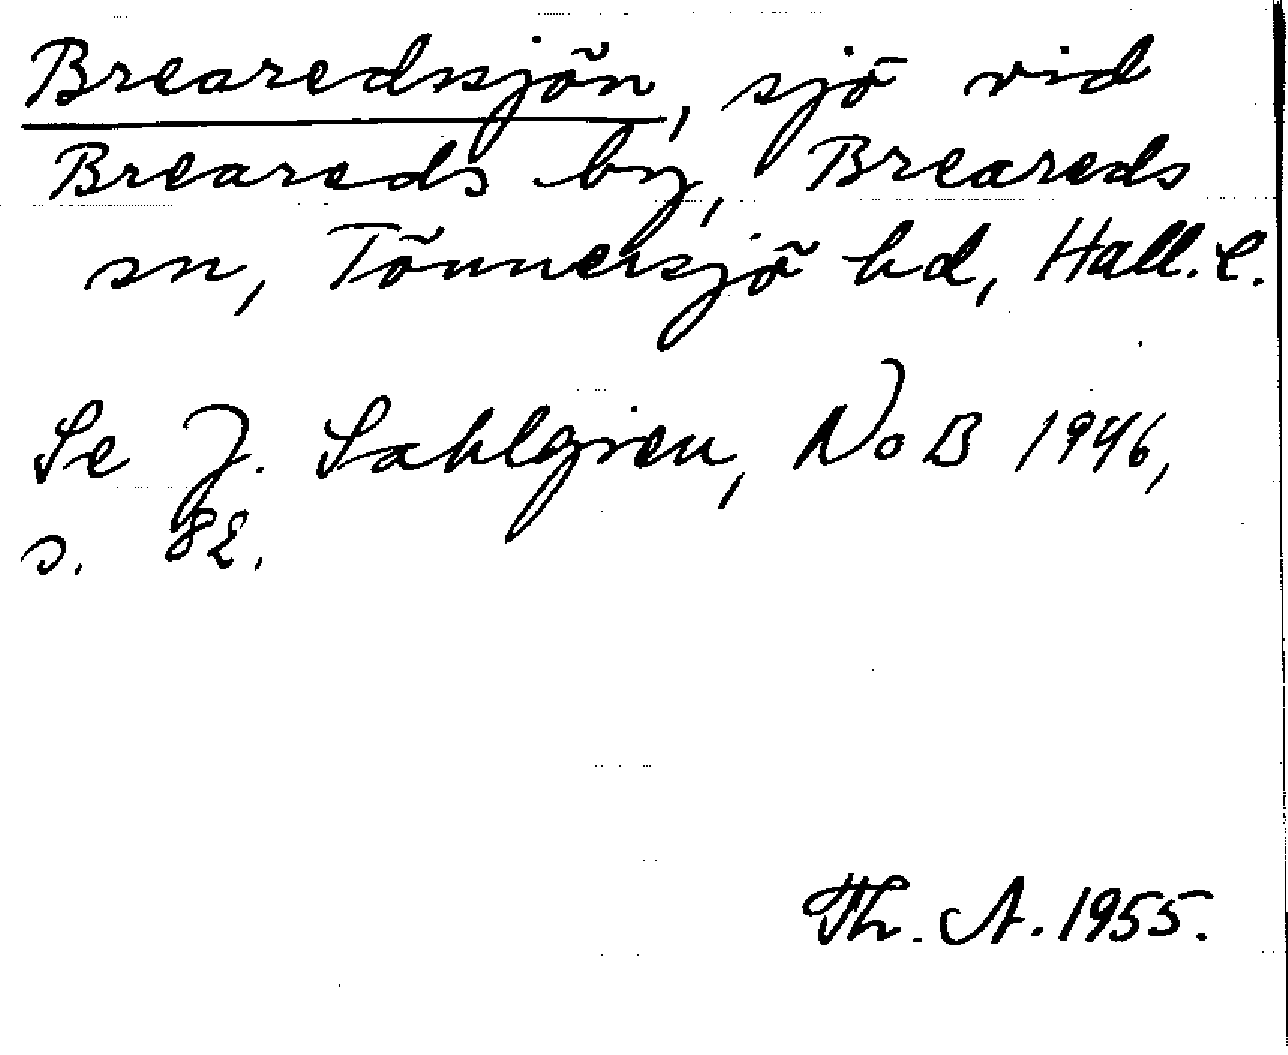 Brearedssjön, sjö vid
Breareds by, Breareds
sn, Tönnersjö hd, Hall. l.
Se J. Sahlgren, NoB 1946,
s. 82.
Th. A. 1955.